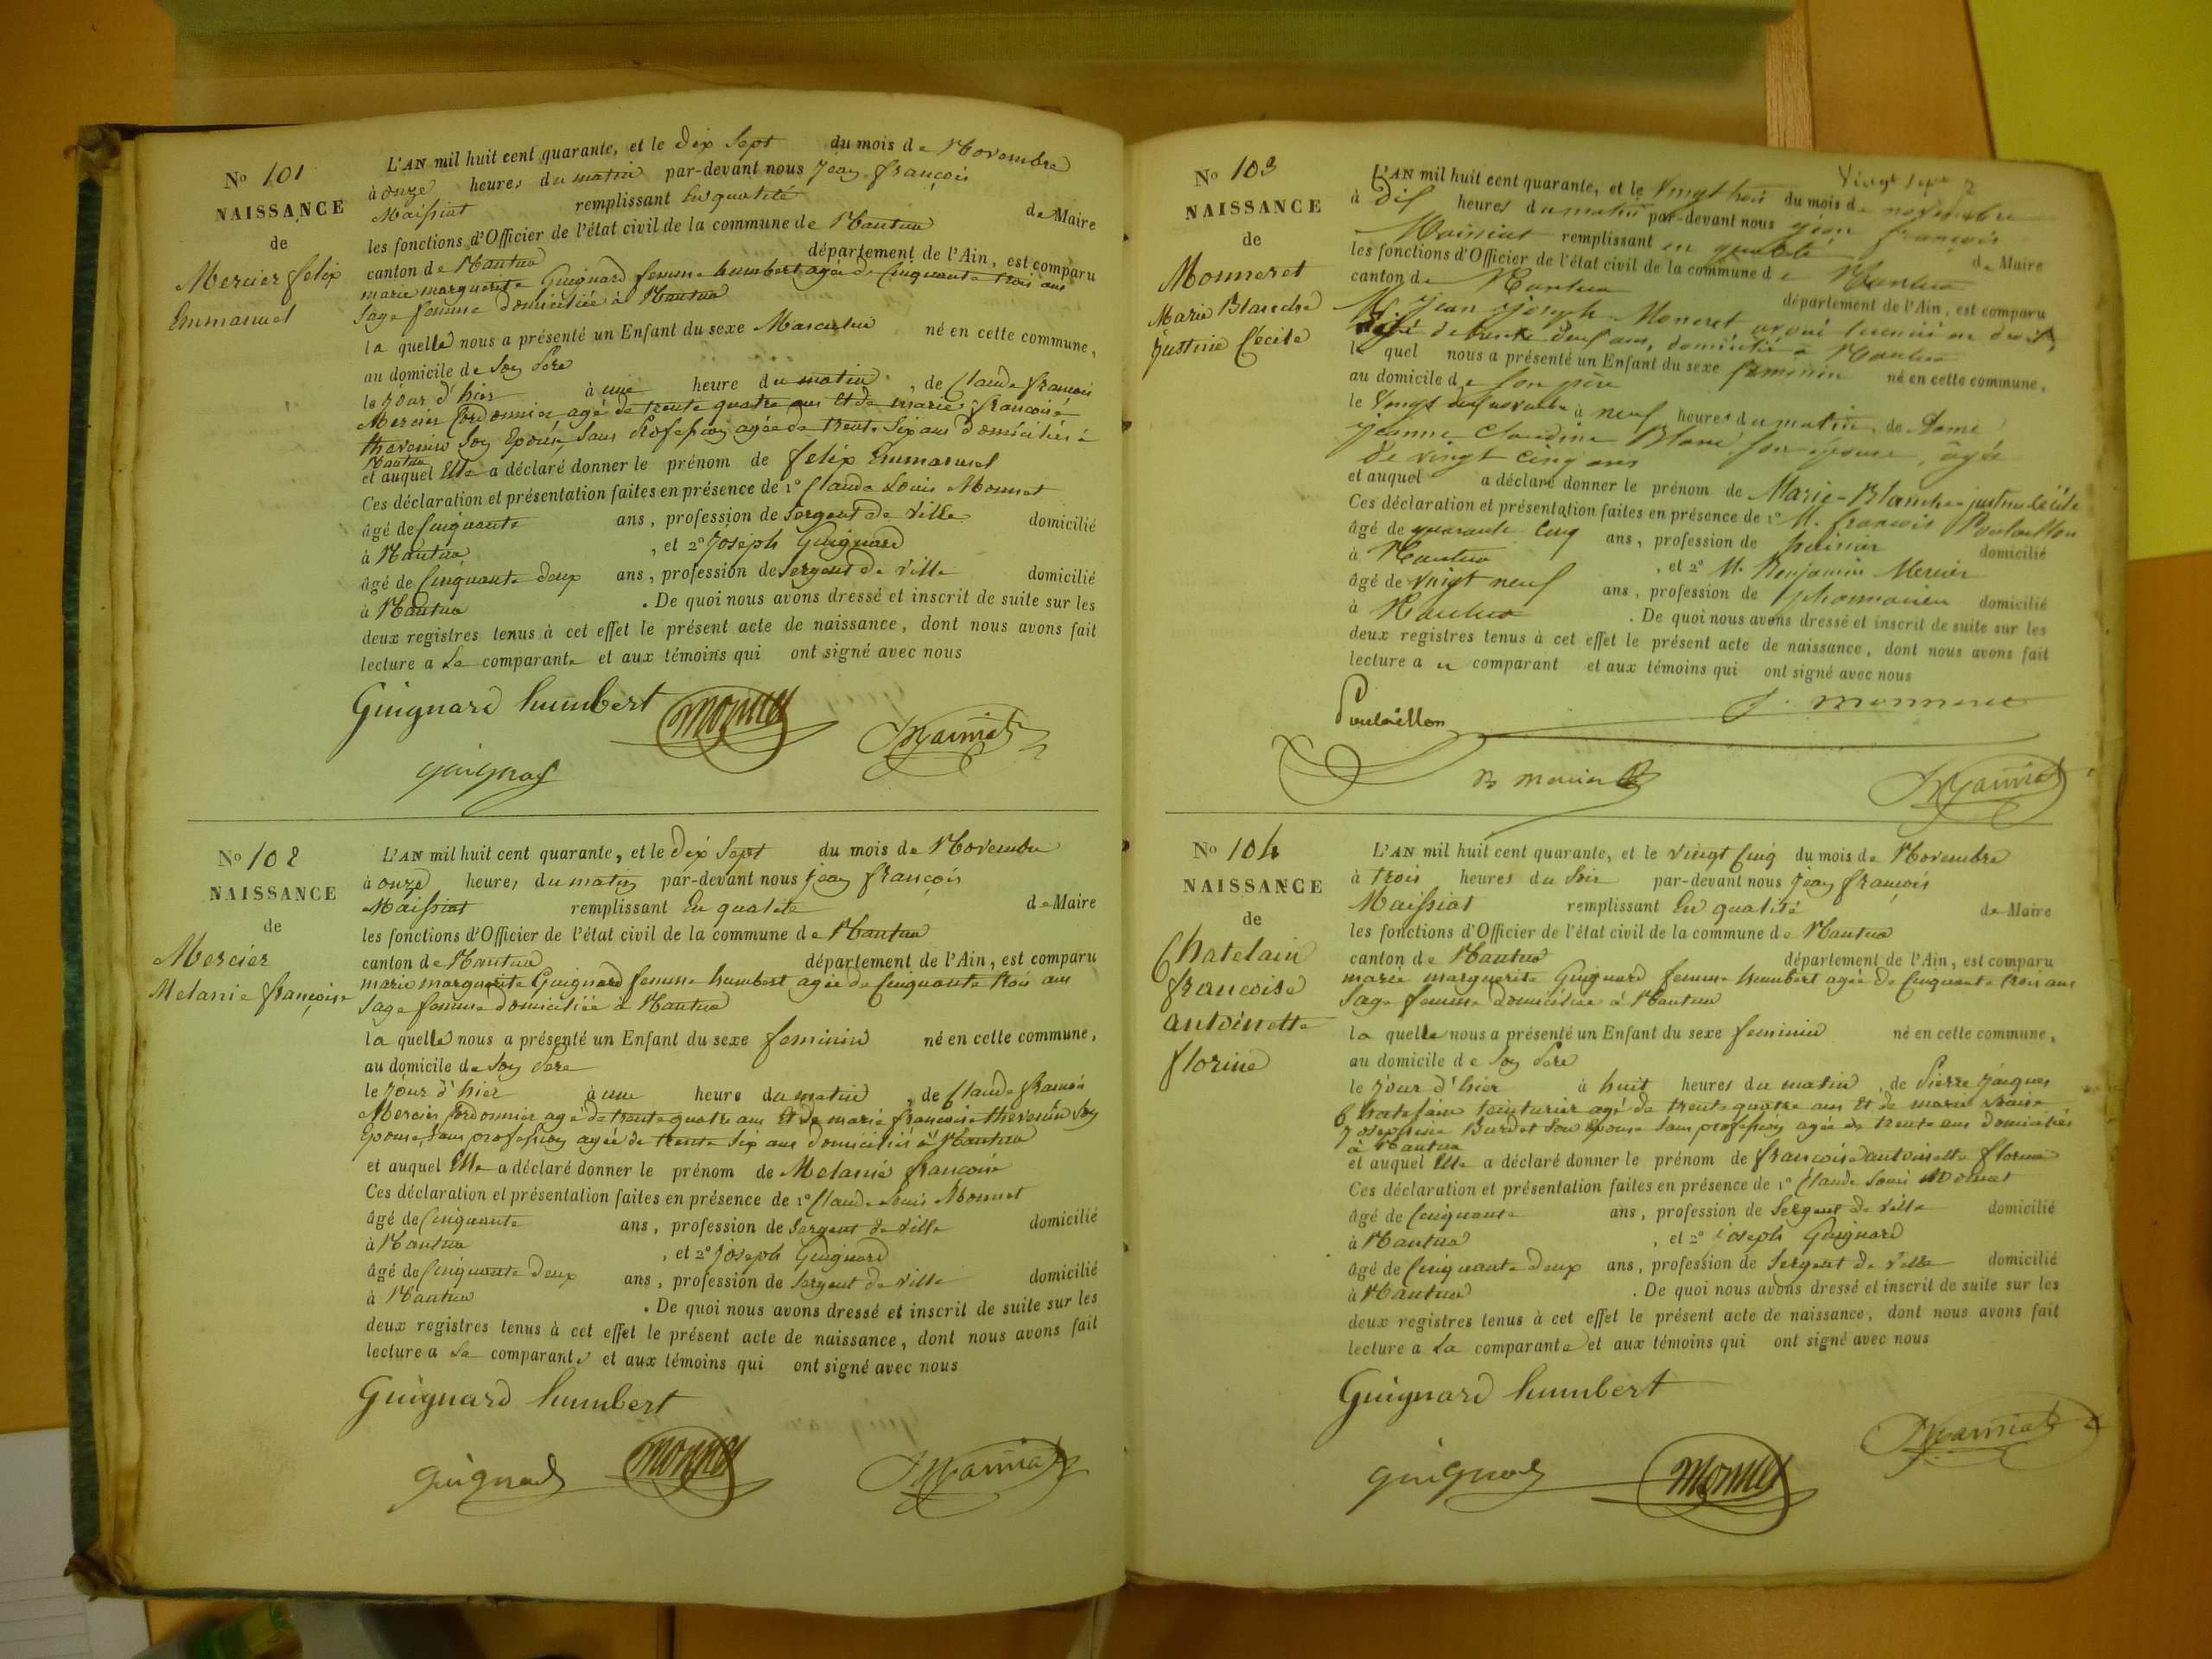 N° 101
NAISSANCE
de
Mercier felix
Emmanuel
L'AN mil huit cent quarante, et le Dix Sept du mois de Novembre
à onze heures du matin par-devant nous Jean françois
Maissiat remplissant En qualité de Maire
les fonctions d'Officier de l'état civil de la commune de Nantua
canton de Nantua département de l'Ain, est comparu
marie marguerite Guignard femme humbert agée de Cinquante trois ans
Sage femme domiciliée à Nantua
la quelle nous a présenté un Enfant du sexe Masculin né en cette commune,
au domicile de Son Père
le jour d'hier à une heure du matin, de Claude françois
Mercier Cordonnier agé de trente quatre ans Et de marie françoise
thevenin Son Epouse, Sans Profession agée de trente Six ans domiciliés à
Nantua
et auquel Elle a déclaré donner le prénom de felix Emmanuel
Ces déclaration et présentation faites en présence de 1° Claude Louis Monnet
âgé de Cinquante ans, profession de Sergent de Ville domicilié
à Nantua, et 2° Joseph Guignard
âgé de Cinquante deux ans, profession de Sergent de Ville domicilié
à Nantua. De quoi nous avons dressé et inscrit de suite sur les
deux registres tenus à cet effet le présent acte de naissance, dont nous avons fait
lecture a La comparante et aux témoins qui ont signé avec nous
Guignard humbert Monnet Maissiat
guignard
N° 102
NAISSANCE
de
Mercier
Melanie françoise
L'AN mil huit cent quarante, et le Dix Sept du mois de Novembre
à onze heures du matin par-devant nous Jean françois
Maissiat remplissant En qualité de Maire
les fonctions d'Officier de l'état civil de la commune de Nantua
canton de Nantua département de l'Ain, est comparu
marie marguerite Guignard femme humbert agée de Cinquante trois ans
Sage femme domiciliée à Nantua
la quelle nous a présenté un Enfant du sexe feminin né en cette commune,
au domicile de Son Père
le jour d'hier à une heure du matin, de Claude françois
Mercier Cordonnier agé de trente quatre ans Et de marie françoise thevenin Son
Epouse, Sans profession agée de trente Six ans domiciliés à Nantua
et auquel Elle a déclaré donner le prénom de Melanie françoise
Ces déclaration et présentation faites en présence de 1° Claude Louis Monnet
âgé de Cinquante ans, profession de Sergent de Ville domicilié
à Nantua, et 2° Joseph Guignard
âgé de Cinquante deux ans, profession de Sergent de Ville domicilié
à Nantua. De quoi nous avons dressé et inscrit de suite sur les
deux registres tenus à cet effet le présent acte de naissance, dont nous avons fait
lecture a La comparante et aux témoins qui ont signé avec nous
Guignard humbert
guignard Monnet Maissiat
N° 103
NAISSANCE
de
Monneret
Marie Blanche
Justine Cécile
L'AN mil huit cent quarante, et le Vingt trois du mois de novembre
à Dix heures du matin par-devant nous jean françois
Maissiat remplissant en qualité de Maire
les fonctions d'Officier de l'état civil de la commune de Nantua
canton de Nantua département de l'Ain, est comparu
M. Jean Joseph Moneret, avoué licencié en droit,
âgé de trente deux ans, domicilié à Nantua
le quel nous a présenté un Enfant du sexe feminin né en cette commune,
au domicile de son père
le Vingt deux novembre à neuf heures du matin, de Dame
jeanne Claudine Blanc son épouse, agée
de vingt cinq ans
et auquel a déclaré donner le prénom de Marie-Blanche justine Cécile
Ces déclaration et présentation faites en présence de 1° M. françois Poulaillon
âgé de quarante Cinq ans, profession de domicilié
à Nantua, et 2° M. Benjamin Mercier
âgé de vingt neuf ans, profession de pharmacien domicilié
à Nantua. De quoi nous avons dressé et inscrit de suite sur les
deux registres tenus à cet effet le présent acte de naissance, dont nous avons fait
lecture a comparant et aux témoins qui ont signé avec nous
Poulaillon J. Monneret
B Mercier Maissiat
N° 104
NAISSANCE
de
Chatelain
françoise
antoinette
florine
L'AN mil huit cent quarante, et le vingt Cinq du mois de Novembre
à trois heures du Soir par-devant nous Jean françois
Maissiat remplissant En qualité de Maire
les fonctions d'Officier de l'état civil de la commune de Nantua
canton de Nantua département de l'Ain, est comparu
marie marguerite Guignard femme humbert agée de Cinquante trois ans
Sage femme domiciliée à Nantua
la quelle nous a présenté un Enfant du sexe feminin né en cette commune,
au domicile de Son Père
le jour d'hier à huit heures du matin, de Pierre Jacques
Chatelain teinturier agé de trente quatre ans Et de marie
Josephine Burdet Son epouse Sans profession agée de trente ans domiciliés
à Nantua
et auquel Elle a déclaré donner le prénom de françoise antoinette florine
Ces déclaration et présentation faites en présence de 1° Claude Louis Monnet
âgé de Cinquante ans, profession de Sergent de Ville domicilié
à Nantua, et 2° joseph Guignard
âgé de Cinquante deux ans, profession de Sergent de Ville domicilié
à Nantua. De quoi nous avons dressé et inscrit de suite sur les
deux registres tenus à cet effet le présent acte de naissance, dont nous avons fait
lecture a La comparante et aux témoins qui ont signé avec nous
Guignard humbert
guignard Monnet Maissiat